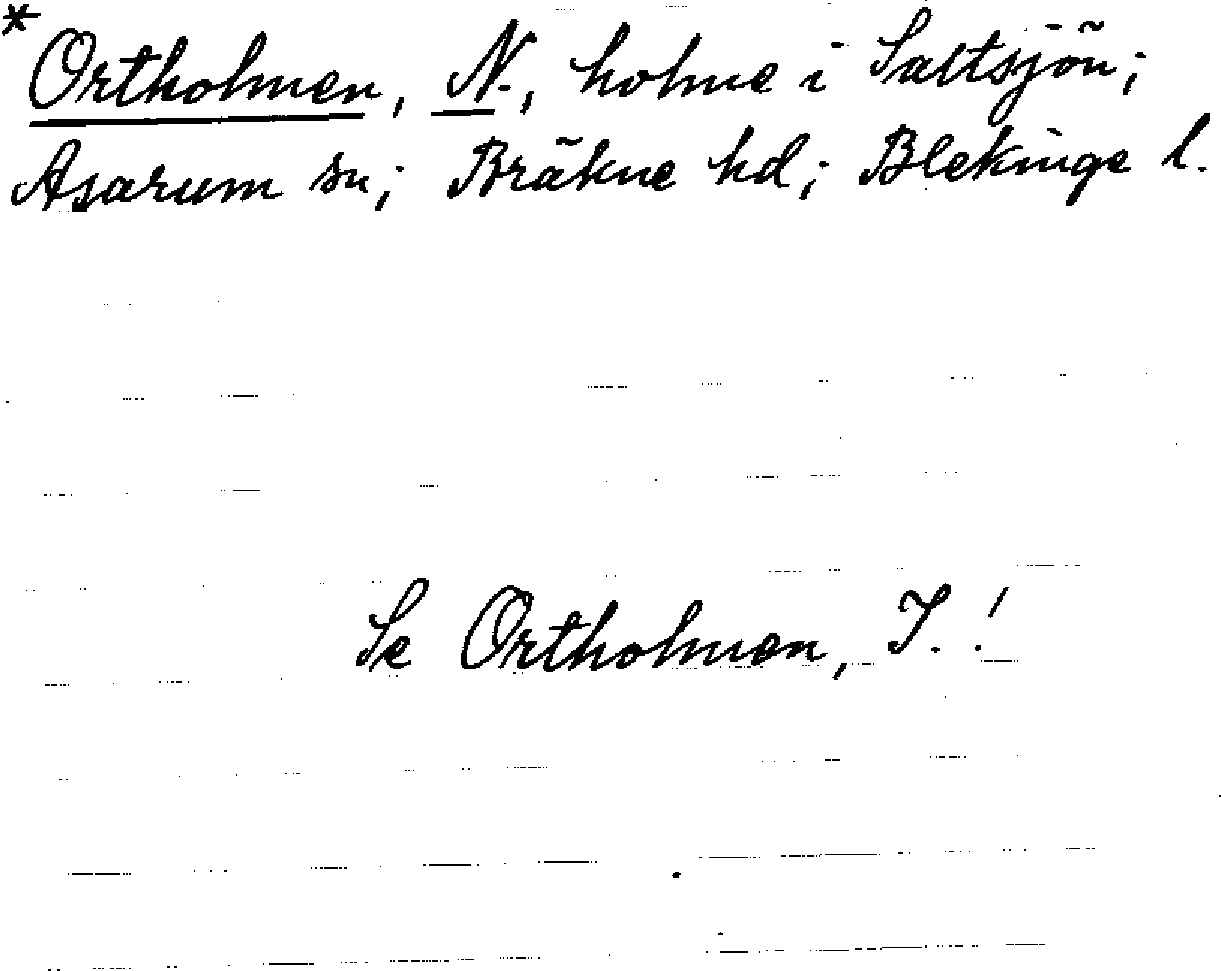 * Ortholmen, N., holme i Saltsjön;
Asarum sn; Bräkne hd; Blekinge l.
Se Ortholmen, I.!